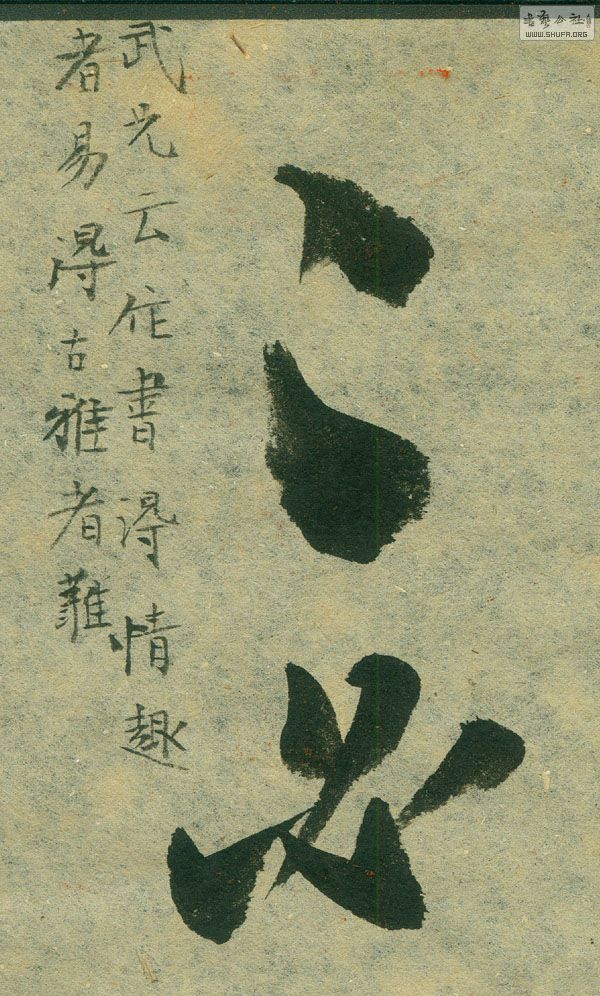 丶
丶
必
武光云作書得情趣
者易得古雅者難
书艺公社
WWW.SHUFA.ORG